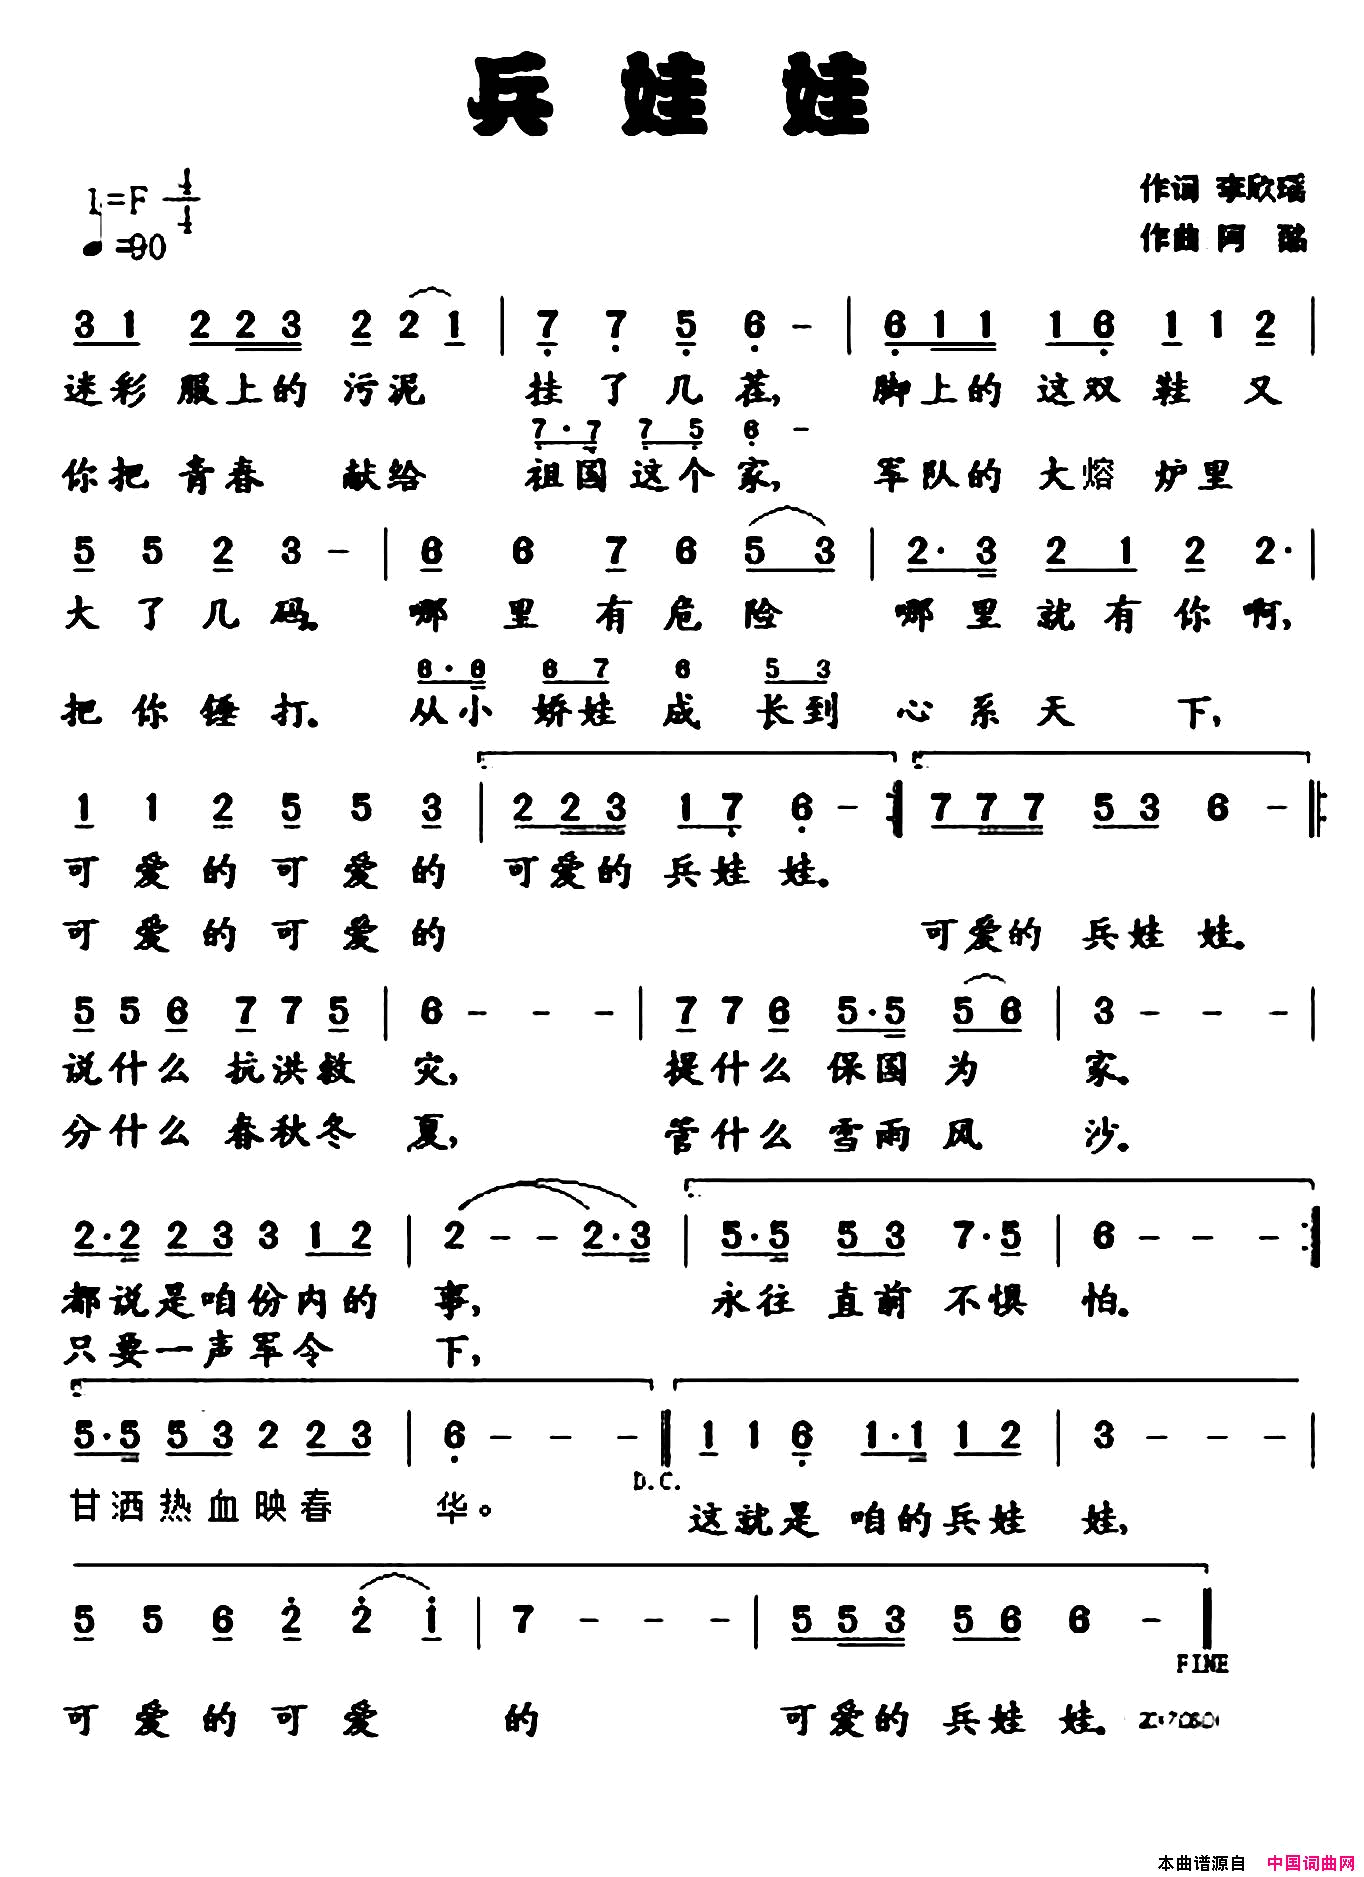 兵 娃 娃
1=F 4/4
作词 李欣瑶
♩=90
作曲 阿 酩
3 1 2 2 3 2 2 1 | 7 7 5 6 - | 6 1 1 1 6 1 1 2 |
迷彩 服上的 污泥 挂 了 几 茬, 脚上的 这双 鞋 又
7 · 7 7 5 6 -
你把 青春 献给 祖国 这个 家, 军队的 大熔 炉里
5 5 2 3 - | 6 6 7 6 5 3 | 2 · 3 2 1 2 2 · |
大 了 几 码。 哪 里 有 危 险 哪 里 就 有 你 啊,
6 · 6 6 7 6 5 3
把 你 锤 打。 从小 娇娃 成 长到 心 系 天 下,
1 1 2 5 5 3 | 2 2 3 1 7 6 - :| 7 7 7 5 3 6 - |:
可 爱 的 可 爱 的 可爱的 兵娃 娃。
可 爱 的 可 爱 的 可爱的 兵娃 娃。
5 5 6 7 7 5 | 6 - - - | 7 7 6 5 · 5 5 6 | 3 - - - |
说什么 抗洪救 灾, 提什么 保国 为 家。
分什么 春秋冬 夏, 管什么 雪雨 风 沙。
2 · 2 2 3 3 1 2 | 2 - - 2 · 3 | 5 · 5 5 3 7 · 5 | 6 - - - :|
都说是咱份内的 事, 永往 直前 不惧 怕。
只要一声军令 下,
5 · 5 5 3 2 2 3 | 6 - - - || 1 1 6 1 · 1 1 2 | 3 - - - |
D.C.
甘洒热血映春 华。 这就是 咱的兵娃 娃,
5 5 6 2 2 1 | 7 - - - | 5 5 3 5 6 6 - ||
FINE
可 爱 的 可 爱 的 可爱的 兵娃 娃。
本曲谱源自 中国词曲网